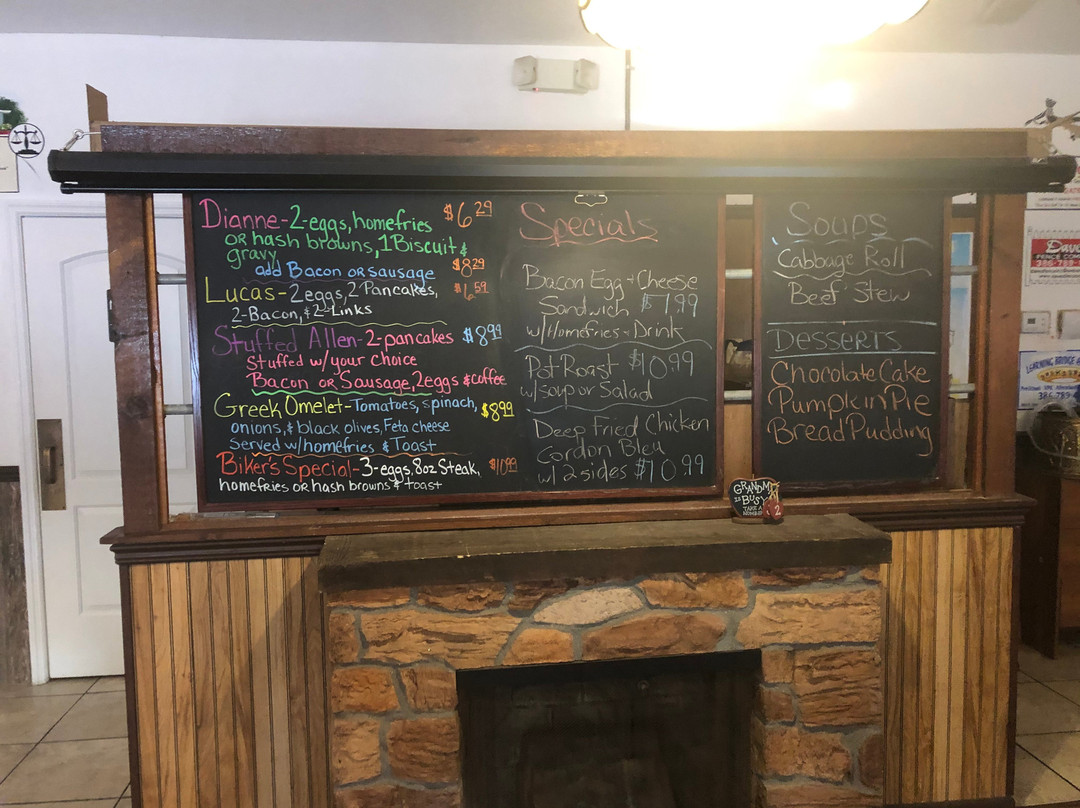 Dianne-2-eggs, homefries $6 29
or hash browns, 1 Biscuit &
gravy
add Bacon or sausage $8 29
Lucas-2eggs, 2 Pancakes, $6.59
2-Bacon, & 2-Links
Stuffed Allen-2-pancakes $8 99
Stuffed w/your choice
Bacon or Sausage, 2eggs & coffee
Greek Omelet-Tomatoes, spinach, $8 99
onions, & black olives, Feta cheese
Served w/homefries & Toast
Biker's Special-3-eggs, 8oz Steak, $10 99
homefries or hash browns & toast
Specials
Bacon Egg + Cheese
Sandwich $7.99
w/Homefries + Drink
Pot Roast $10.99
w/soup or Salad
Deep Fried Chicken
Cordon Bleu
w/ 2 sides $10.99
Soups
Cabbage Roll
Beef Stew
Desserts
Chocolate Cake
Pumpkin Pie
Bread Pudding
GRANDMA
IS BUSY
TAKE A
NUMBER
2
Dav
FENCE CO
386-789
LEARNING BRIDGE
386.789